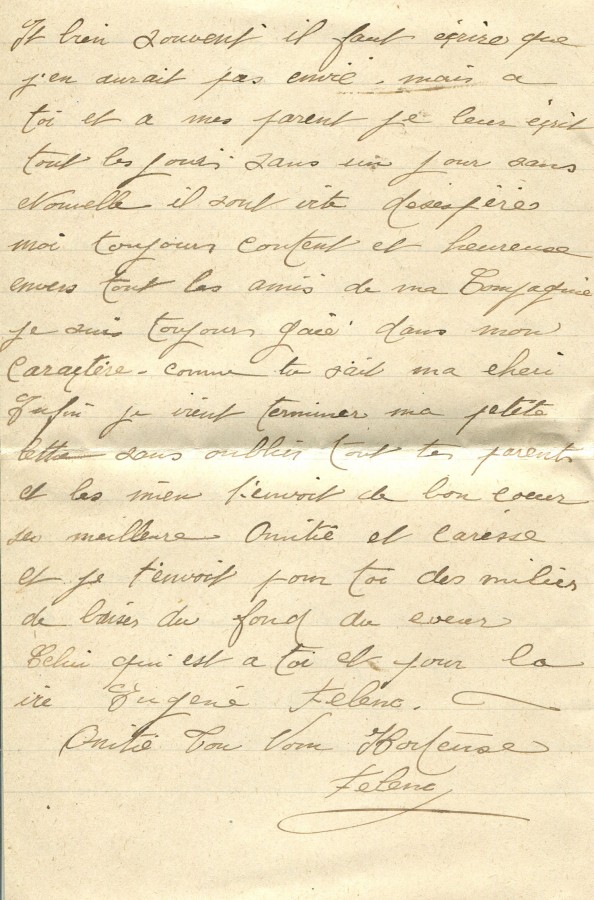 Et bien souvent il faut écrire que
j'en aurait pas envie. mais a
toi et a mes parent je leur ecrit
tout les jours sans un jour sans
Nouvelle il sont vite desespérés
moi toujours content et heureuse
envers tout les amis de ma Compagnie
je suis toujours gaié dans mon
Caractére - comme tu sait ma cheri
Enfin je vient terminer ma petite
lettre sans oublier tout tes parents
et les mien t'envoit de bon coeur
ses meilleure Amitié et Caresse
et je t'envoit pour toi des milier
de baiser du fond du coeur
Celui qui est a toi et pour la
vie Eugené Felenc.
Amitié Hortense
Felenc